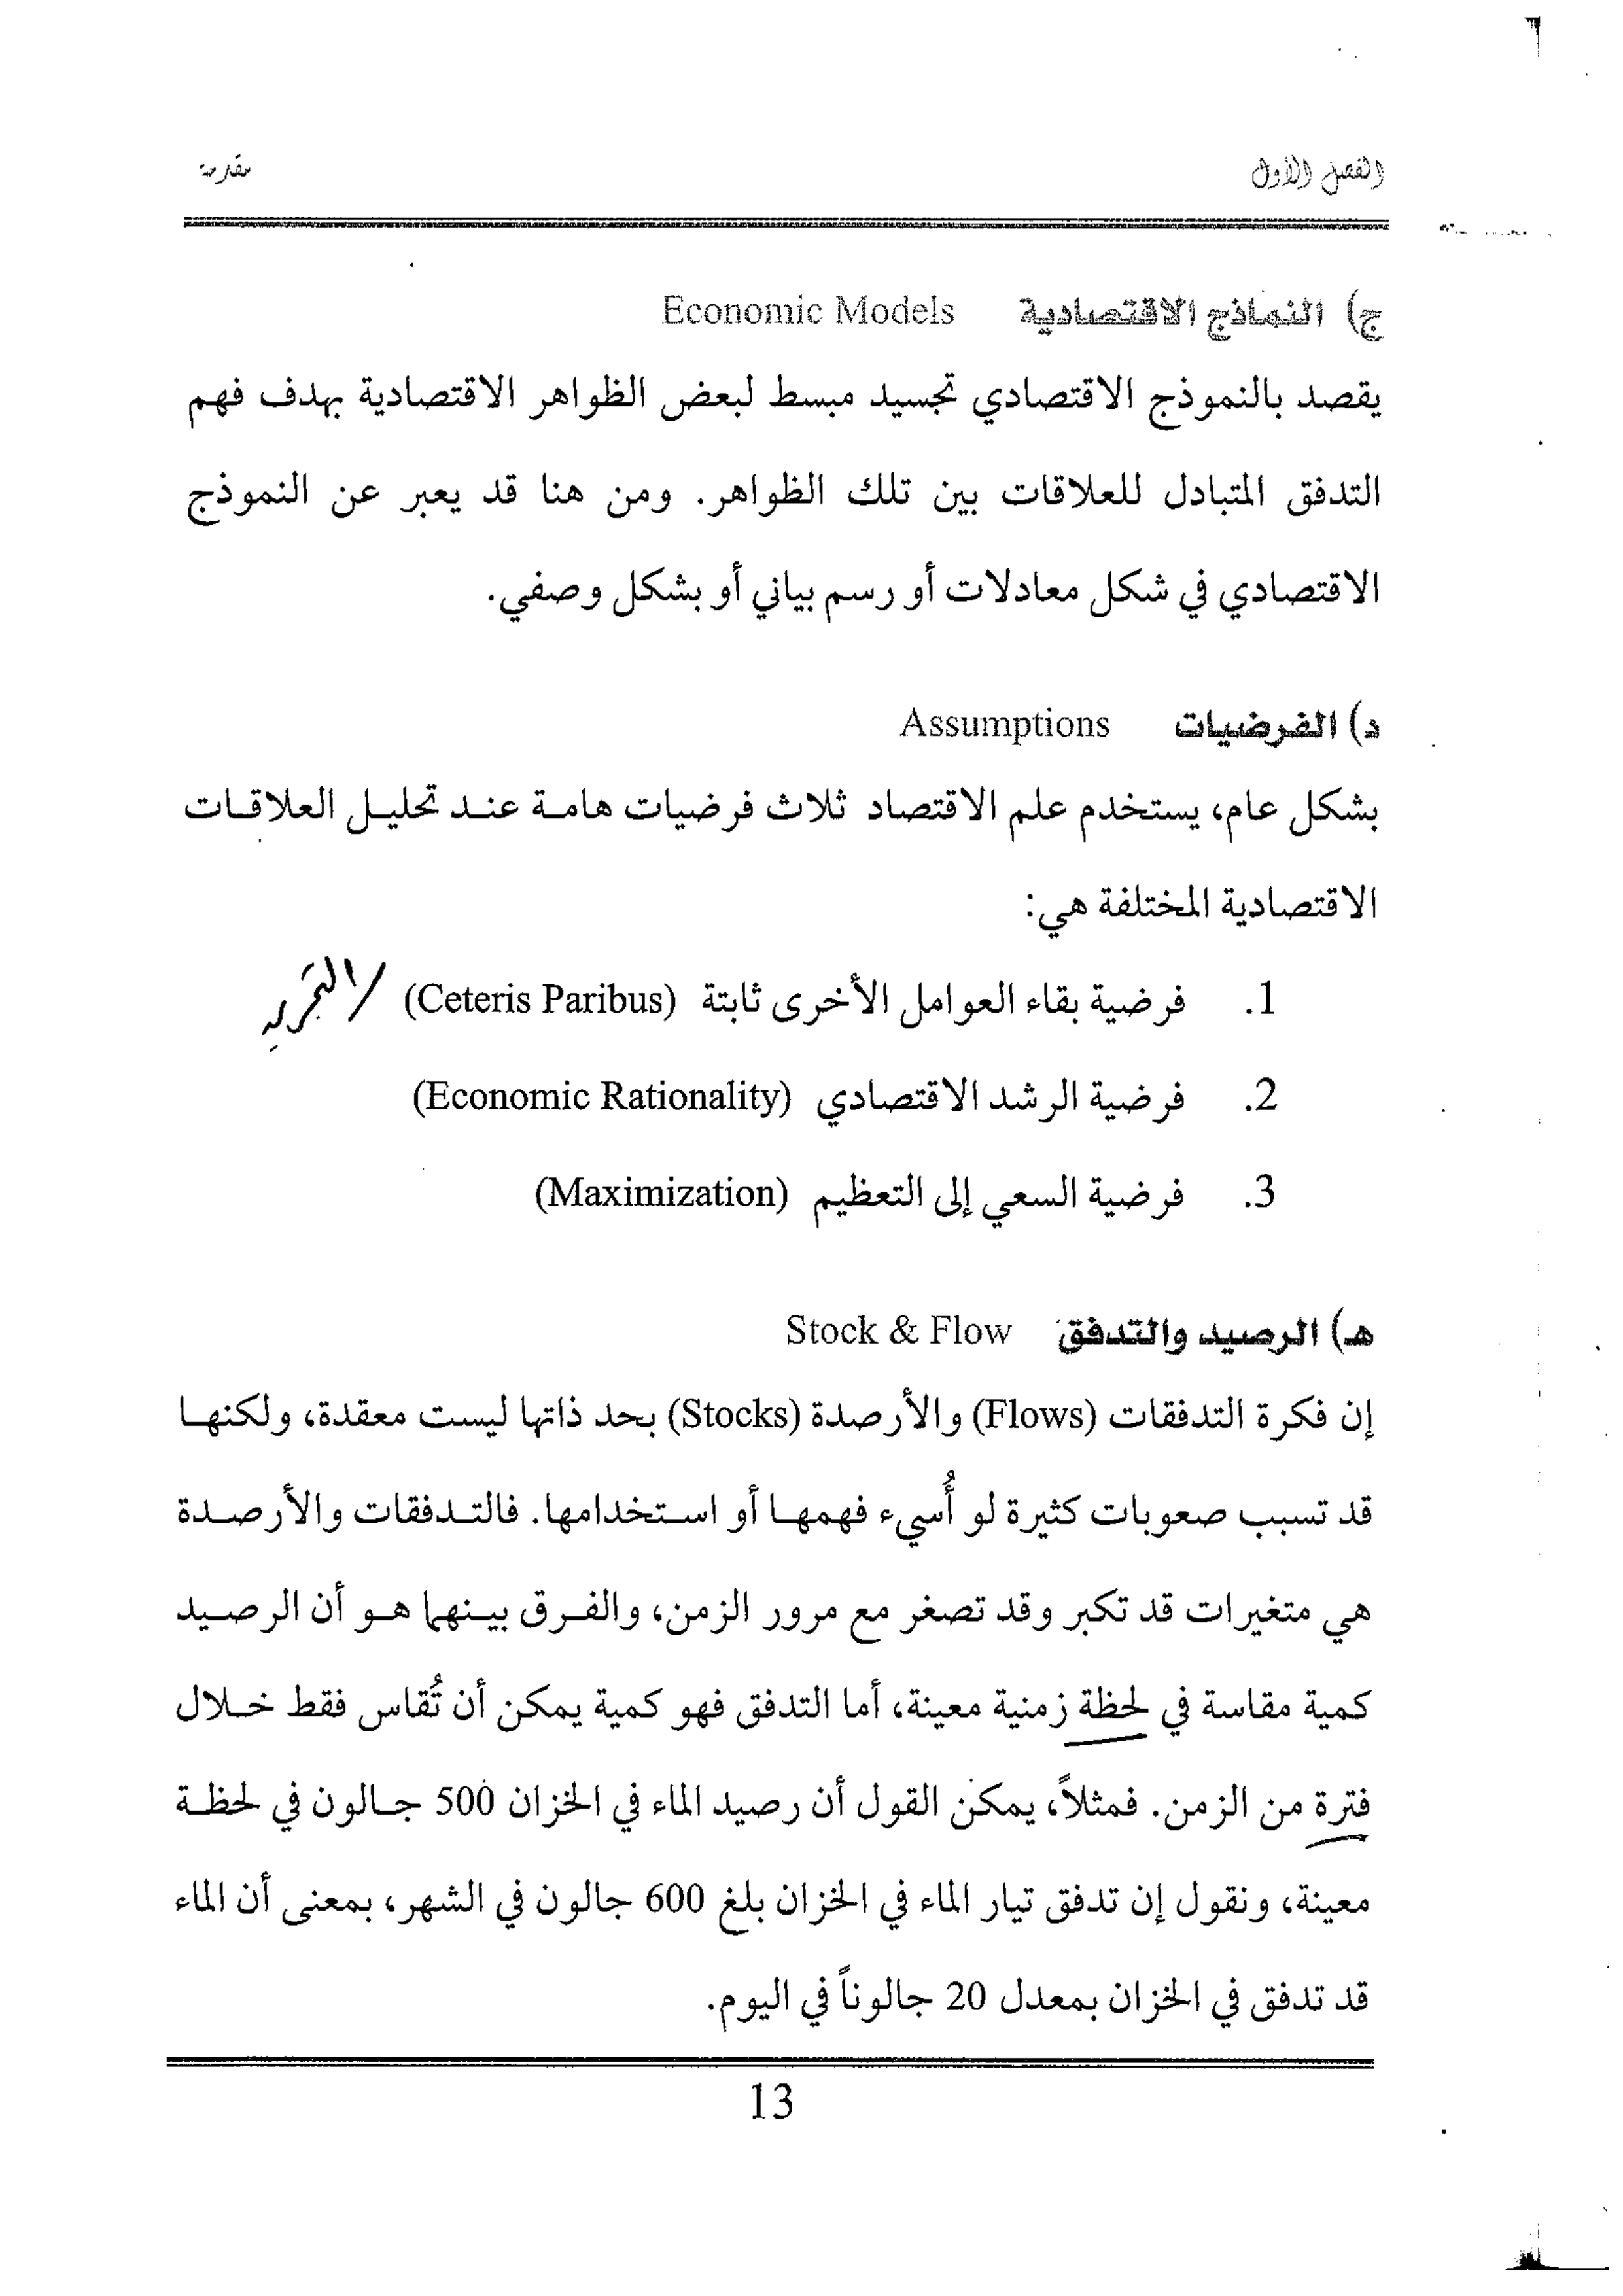 الفصل الأول
مقدمة
ج) النماذج الاقتصادية Economic Models
يقصد بالنموذج الاقتصادي تجسيد مبسط لبعض الظواهر الاقتصادية بهدف فهم
التدفق المتبادل للعلاقات بين تلك الظواهر. ومن هنا قد يعبر عن النموذج
الاقتصادي في شكل معادلات أو رسم بياني أو بشكل وصفي.
د) الفرضيات Assumptions
بشكل عام، يستخدم علم الاقتصاد ثلاث فرضيات هامة عند تحليل العلاقات
الاقتصادية المختلفة هي:
1. فرضية بقاء العوامل الأخرى ثابتة (Ceteris Paribus)
2. فرضية الرشد الاقتصادي (Economic Rationality)
3. فرضية السعي إلى التعظيم (Maximization)
هـ) الرصيد والتدفق Stock & Flow
إن فكرة التدفقات (Flows) والأرصدة (Stocks) بحد ذاتها ليست معقدة، ولكنها
قد تسبب صعوبات كثيرة لو أُسيء فهمها أو استخدامها. فالتدفقات والأرصدة
هي متغيرات قد تكبر وقد تصغر مع مرور الزمن، والفرق بينهما هو أن الرصيد
كمية مقاسة في لحظة زمنية معينة، أما التدفق فهو كمية يمكن أن تُقاس فقط خلال
فترة من الزمن. فمثلاً، يمكن القول أن رصيد الماء في الخزان 500 جالون في لحظة
معينة، ونقول إن تدفق تيار الماء في الخزان بلغ 600 جالون في الشهر، بمعنى أن الماء
قد تدفق في الخزان بمعدل 20 جالوناً في اليوم.
13